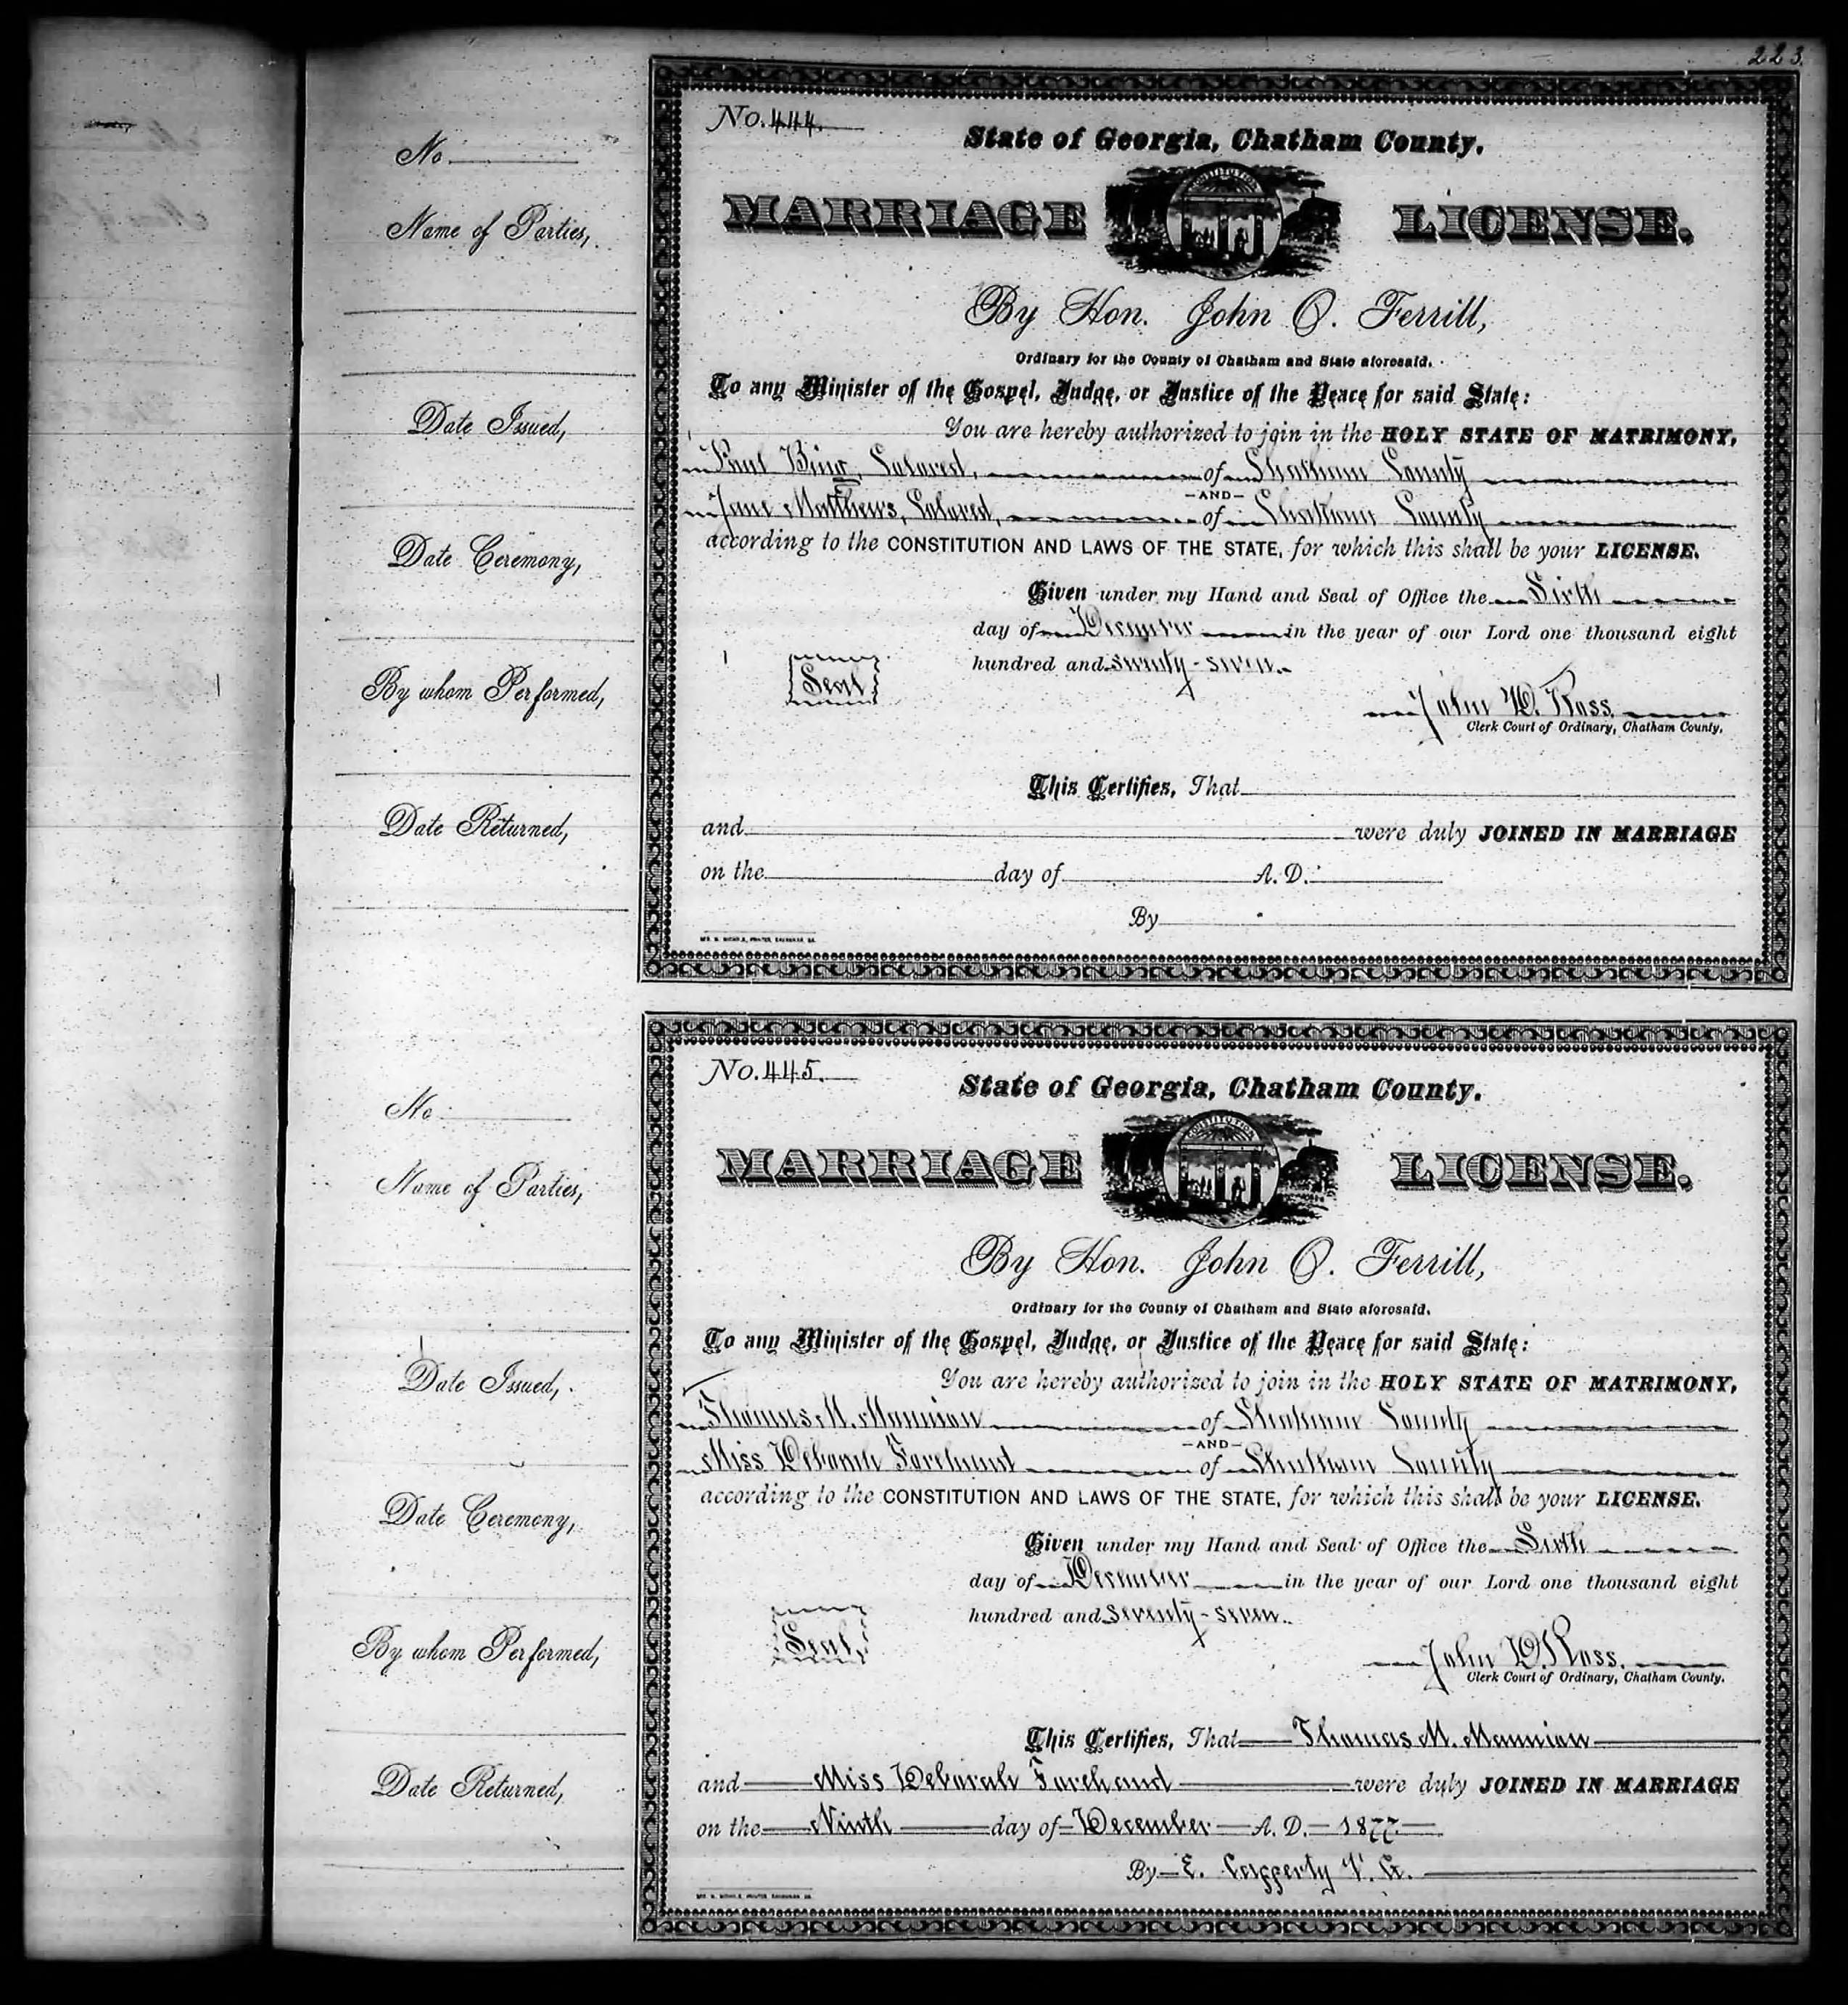 223.
No.
Name of Parties,
Date Issued,
Date Ceremony,
By whom Performed,
Date Returned,
No. 444.
State of Georgia, Chatham County.
MARRIAGE LICENSE.
CONSTITUTION
By Hon. John O. Ferrill,
Ordinary for the County of Chatham and State aforesaid.
To any Minister of the Gospel, Judge, or Justice of the Peace for said State:
You are hereby authorized to join in the HOLY STATE OF MATRIMONY,
Paul Bing, Colored, of Chatham County
—AND—
Jane Matthews, Colored, of Chatham County
according to the CONSTITUTION AND LAWS OF THE STATE, for which this shall be your LICENSE.
Given under my Hand and Seal of Office the Sixth
day of December in the year of our Lord one thousand eight
hundred and seventy-seven.
Seal
John D. Ross.
Clerk Court of Ordinary, Chatham County.
This Certifies, That
and were duly JOINED IN MARRIAGE
on the day of A. D.
By
GEO. N. NICHOLS, PRINTER, SAVANNAH, GA.
No.
Name of Parties,
Date Issued,
Date Ceremony,
By whom Performed,
Date Returned,
No. 445.
State of Georgia, Chatham County.
MARRIAGE LICENSE.
CONSTITUTION
By Hon. John O. Ferrill,
Ordinary for the County of Chatham and State aforesaid.
To any Minister of the Gospel, Judge, or Justice of the Peace for said State:
You are hereby authorized to join in the HOLY STATE OF MATRIMONY,
Thomas M. Mannion of Chatham County
—AND—
Miss Deborah Forehand of Chatham County
according to the CONSTITUTION AND LAWS OF THE STATE, for which this shall be your LICENSE.
Given under my Hand and Seal of Office the Sixth
day of December in the year of our Lord one thousand eight
hundred and seventy-seven.
Seal
John D. Ross.
Clerk Court of Ordinary, Chatham County.
This Certifies, That Thomas M. Mannion
and Miss Deborah Forehand were duly JOINED IN MARRIAGE
on the Ninth day of December A. D. 1877
By E. Cafferty V. G.
GEO. N. NICHOLS, PRINTER, SAVANNAH, GA.